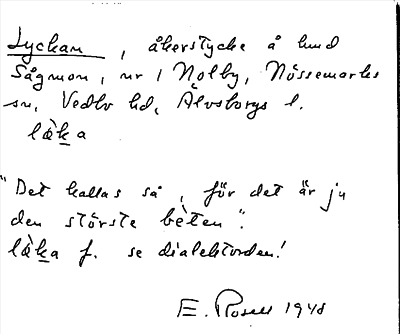 Lyckan, åkerstycke å lund
Sågmon, nr 1 Nolby, Nössemarks
sn, Vedbo hd, Älvsborgs l.
lø̀ka
"Det kallas så, för det är ju
den största bèten".
lø̀ka f. se dialektorden!
E. Rosell 1948